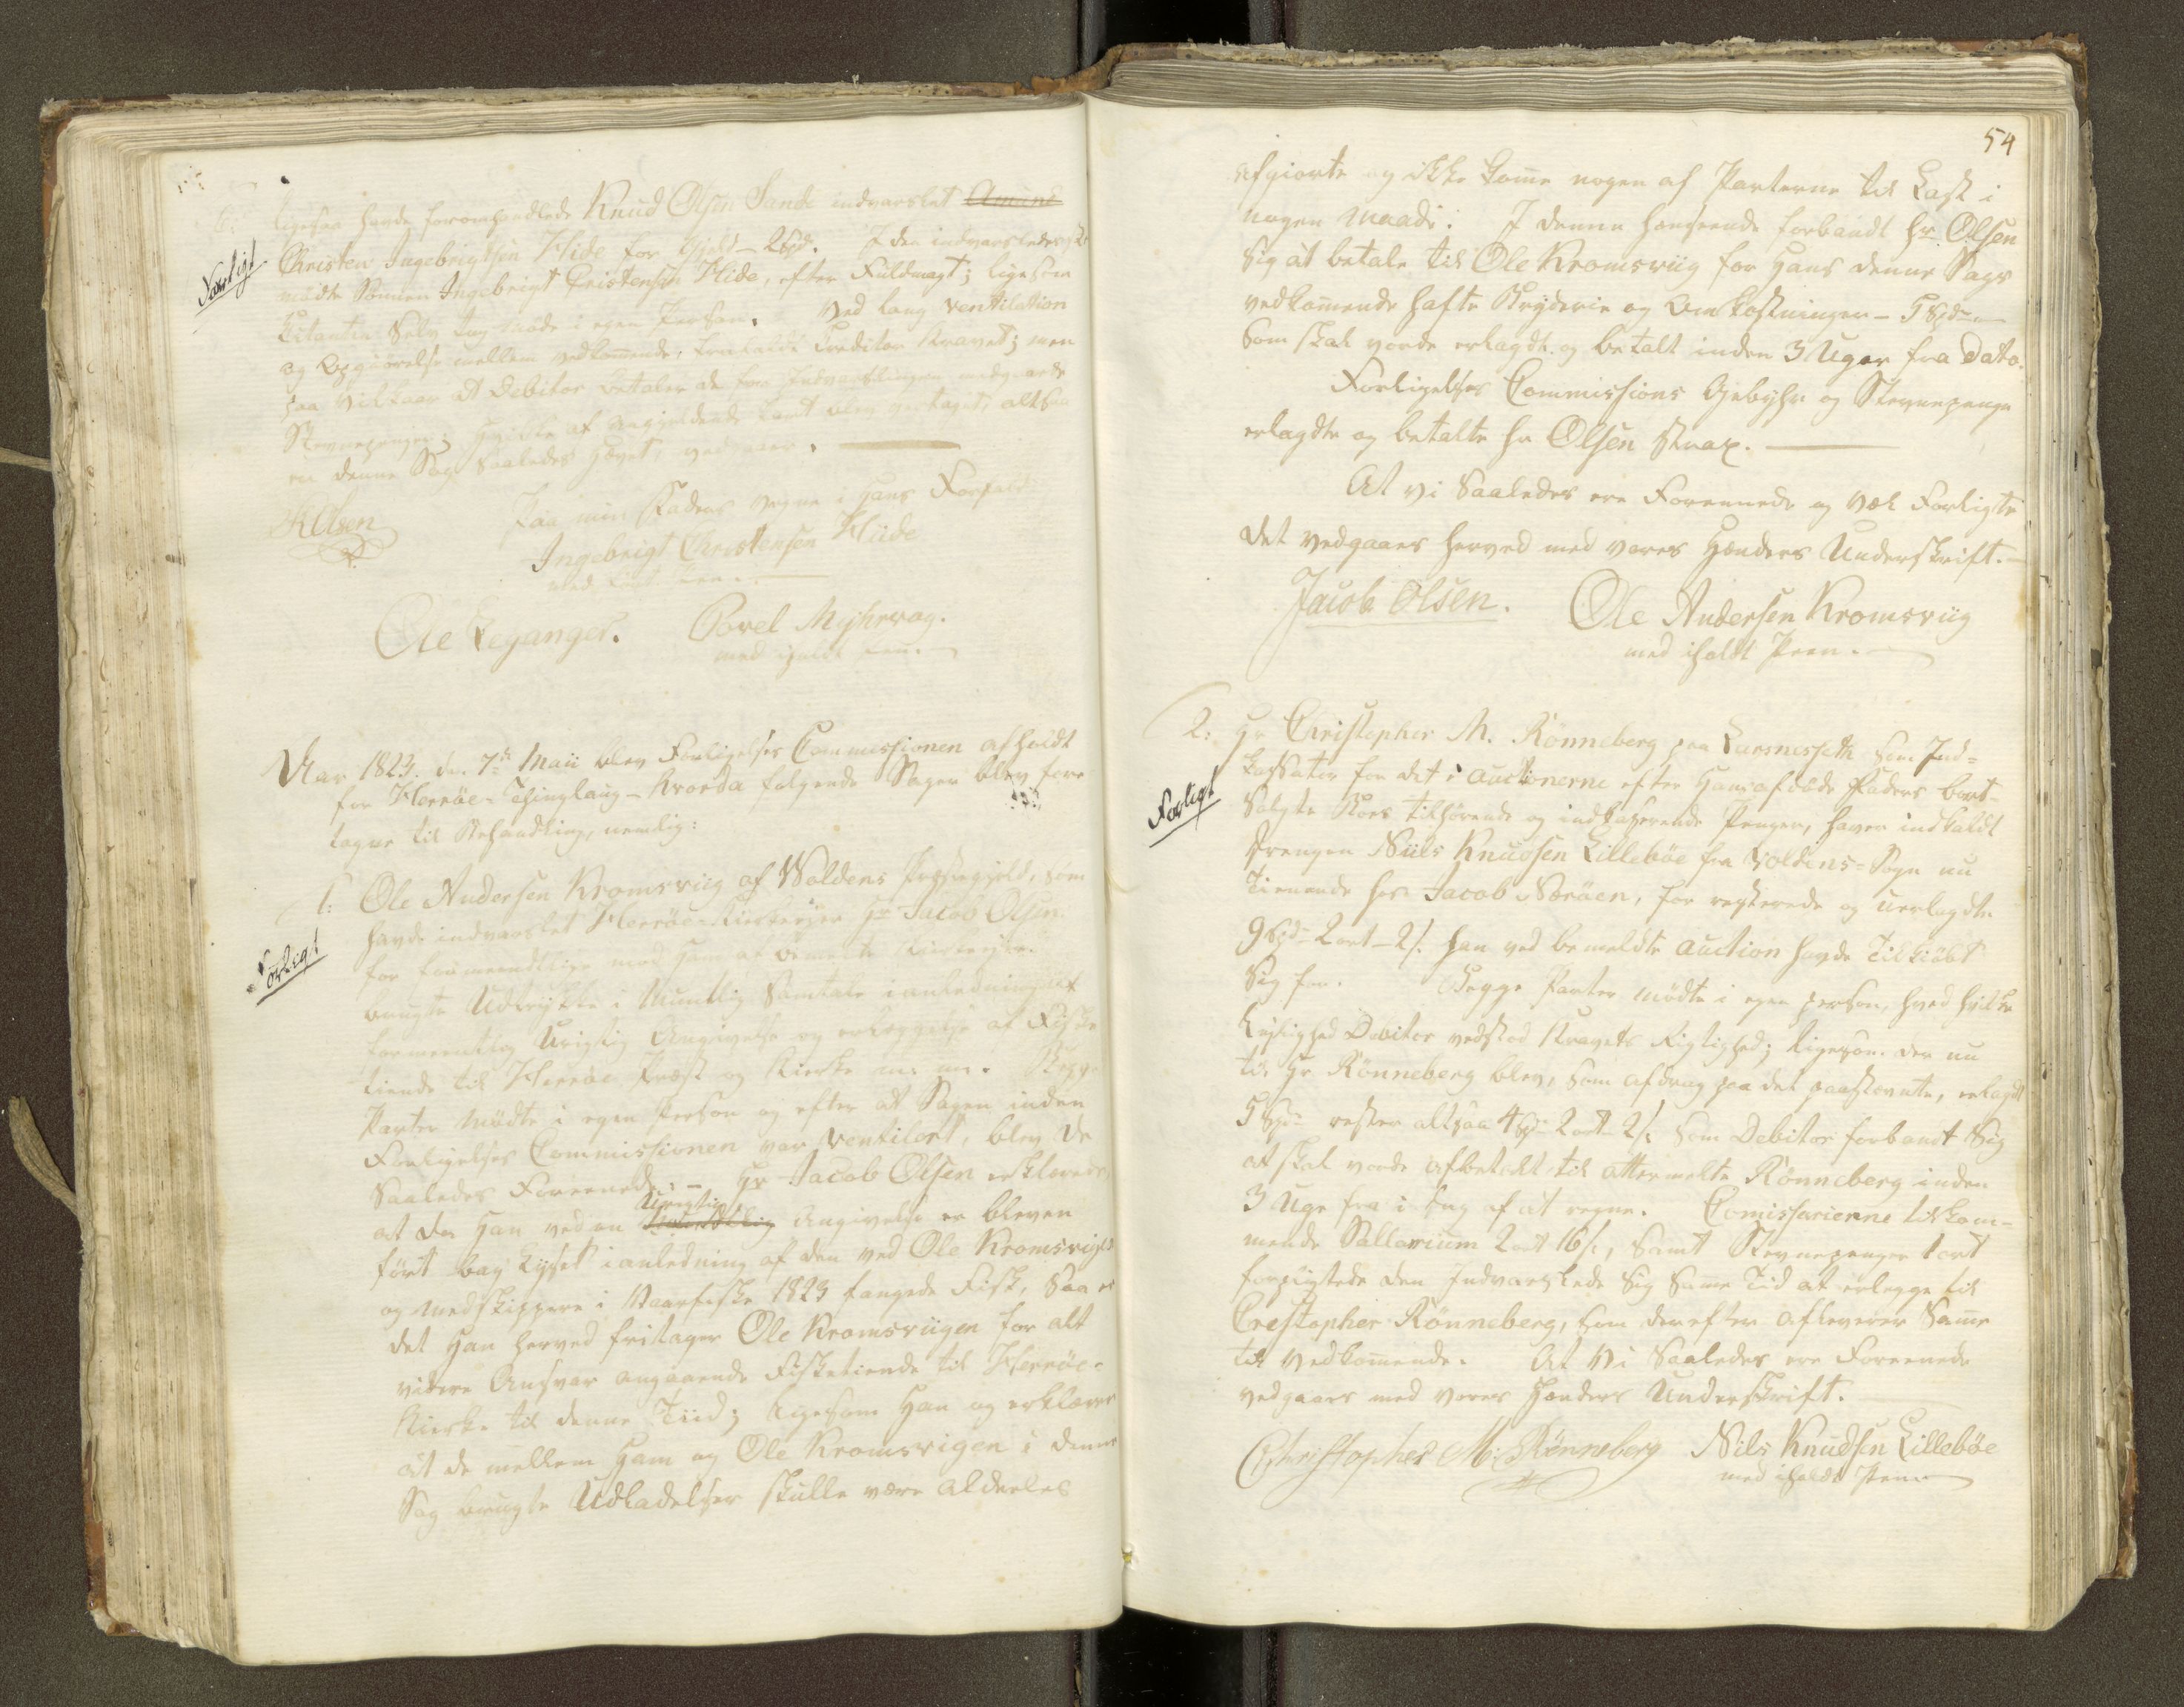 6: ligesaa havde foromhandlede Knud Olsen Sande indvarslet Amund
Forligt
Christen Ingebrigtsen Hide for Gjeld - 2 Spd. I den indvarsledes St
mødte Sønnen Ingebrigt Cristensen Hide, efter Fuldmagt; ligesom
Citanten Selv tog møde i egen Person. Ved lang Ventilation
og Opgiørelse mellem vedkommende, frafaldt Creditor Kravet; men
paa Vilkaar at Debitor betaler de for Indvarslingen medgaaede
Stevnepenger; hvilke af angieldende blev modtaget, altsaa
er denne Sag Saaledes hævet, vedgaaer.
KOlsen
Paa min Faders Vegne i Hans Forfald
Ingebrigt Christensen Hide
med
Ole Leganger. Povel Myhrvog.
med iholdt Pen.
Aar 1823. den 7de Maii blev Forligelses Commissionen afholdt
for Herröe-Tehinglaug - hvorda følgende Sager blev fore-
tagne til Behandling, nemlig:
1: Ole Andersen Kromsviig af Woldens Præstegield, som
Forligt
havde indvarslet Herröe Kirkeejer Hr Jacob Olsen
for fornærmelige mod Ham af bemelte Kirkeejer
brugte Udtrykke i Mundtlig Samtale i anledning af
formeentlig Urigtig Angivelse og erlæggelse af Fiske
tiende til Herröe Præst og Kirke m: m. Begge
Parter mødte i egen Person og efter at Sagen inden
Forligelses Commissionen var Ventilert, blev De
Saaledes Foreenede: - Hr Jacob Olsen erklærede
at da Han ved en Urigtig Angivelse er bleven
ført bag Lyset i anledning af den ved Ole Kromsvig
og Medskippere i Vaarfiske 1823 fangede Fisk, Saa er
det Han herved fritager Ole Kromsviigen for alt
videre Ansvar angaaende Fisketiende til Herröe-
Kirke til denne Tiid; ligesom Han og erklærer
at de mellem Ham og Ole Kromsvigen i denne
Sag brugte Udladelser skulle være aldeeles
54
afgiorte og ikke komme nogen af Parterne til Last i
nogen Maade. I denne henseende forbandt Hr. Olsen
Sig at betale til Ole Kromsviig for Hans denne Sags
vedkommende hafte Bryderie og Omkostninger - 5 Spd
Som skal vorde erlagdt og betalt inden 3 Uger fra Dato.
Forligelses Commissions Gebyhr og Stevnepenge
erlagdte og betalte Hr Olsen Strax.
At vi Saaledes ere Foreenede og vel Forligte
det vedgaaes herved med vores Hænders Underskrift.
Jacob Olsen. Ole Andersen Kromsviig
med iholdt Pen.
2: Hr Christopher M. Rönneberg paa Larsnesseth Som Ind-
Forligt
kassator for det i auctionerne efter Hans afdøde Faders bort-
Solgte Boes tilhørende og indkaserende Penger, haver indkaldt
Drengen Niils Knudsen Lillebøe fra Voldens-Sogn nu
Tienende hos Jacob Nærøen, for resterede og uerlagdte
9 Spd - 2 ort - 2 s. han ved bemeldte auction havde Tilkiöbt
Sig for. Begge Parter mødte i egen person, hved hvilke
Leylighed Debitor vedstod Kravets Rigtighed; ligesom der nu
til Hr Rönneberg blev, Som afdrag paa det paastevnte, erlagdt
5 Spd rester altsaa 4 Spd 2 ort 2 s. Som Debitor forbandt Sig
at skal vorde afbetalt til attermelte Rönneberg inden
3 Uge fra i Dag af at regne. Comissarierne tilkom-
mende Sallarium 2 ort 16 s., Samt Stevnepenger 1 ort
forpligtede den Indvarslede Sig Same Tid at erlegge til
Crestopher Rönneberg, som derefter afleverer Same
til vedkommende. At Vi Saaledes ere Foreenede
vedgaaes med vores Hænders Underskrift.
Christopher M: Rønneberg Nils Knudsen Lillebøe
med iholdt Pen